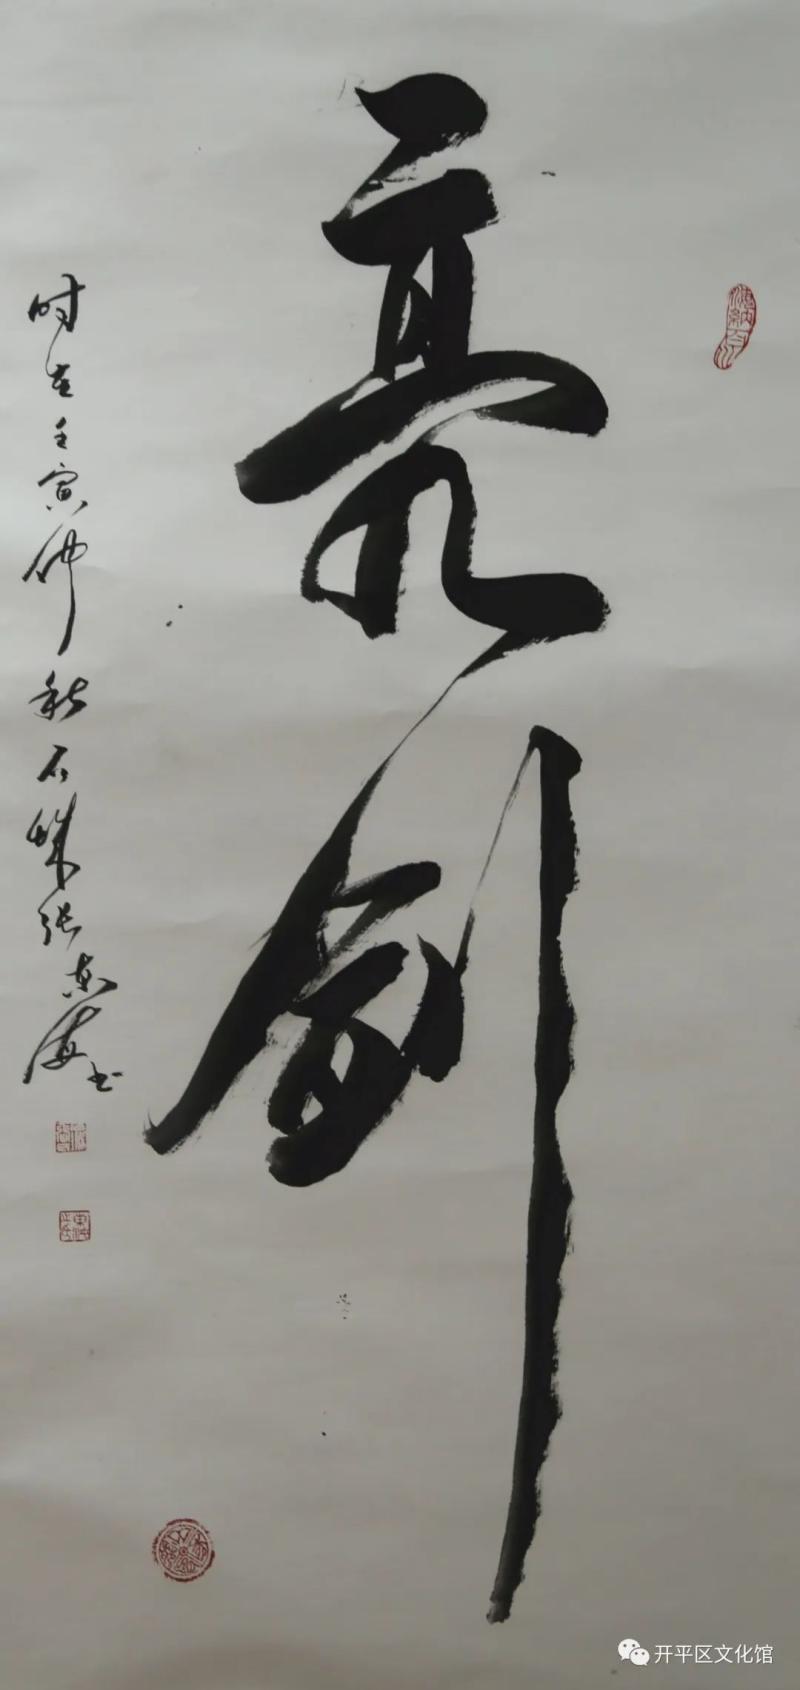 亮剑
时在壬寅仲秋石城张东海书
开平区文化馆